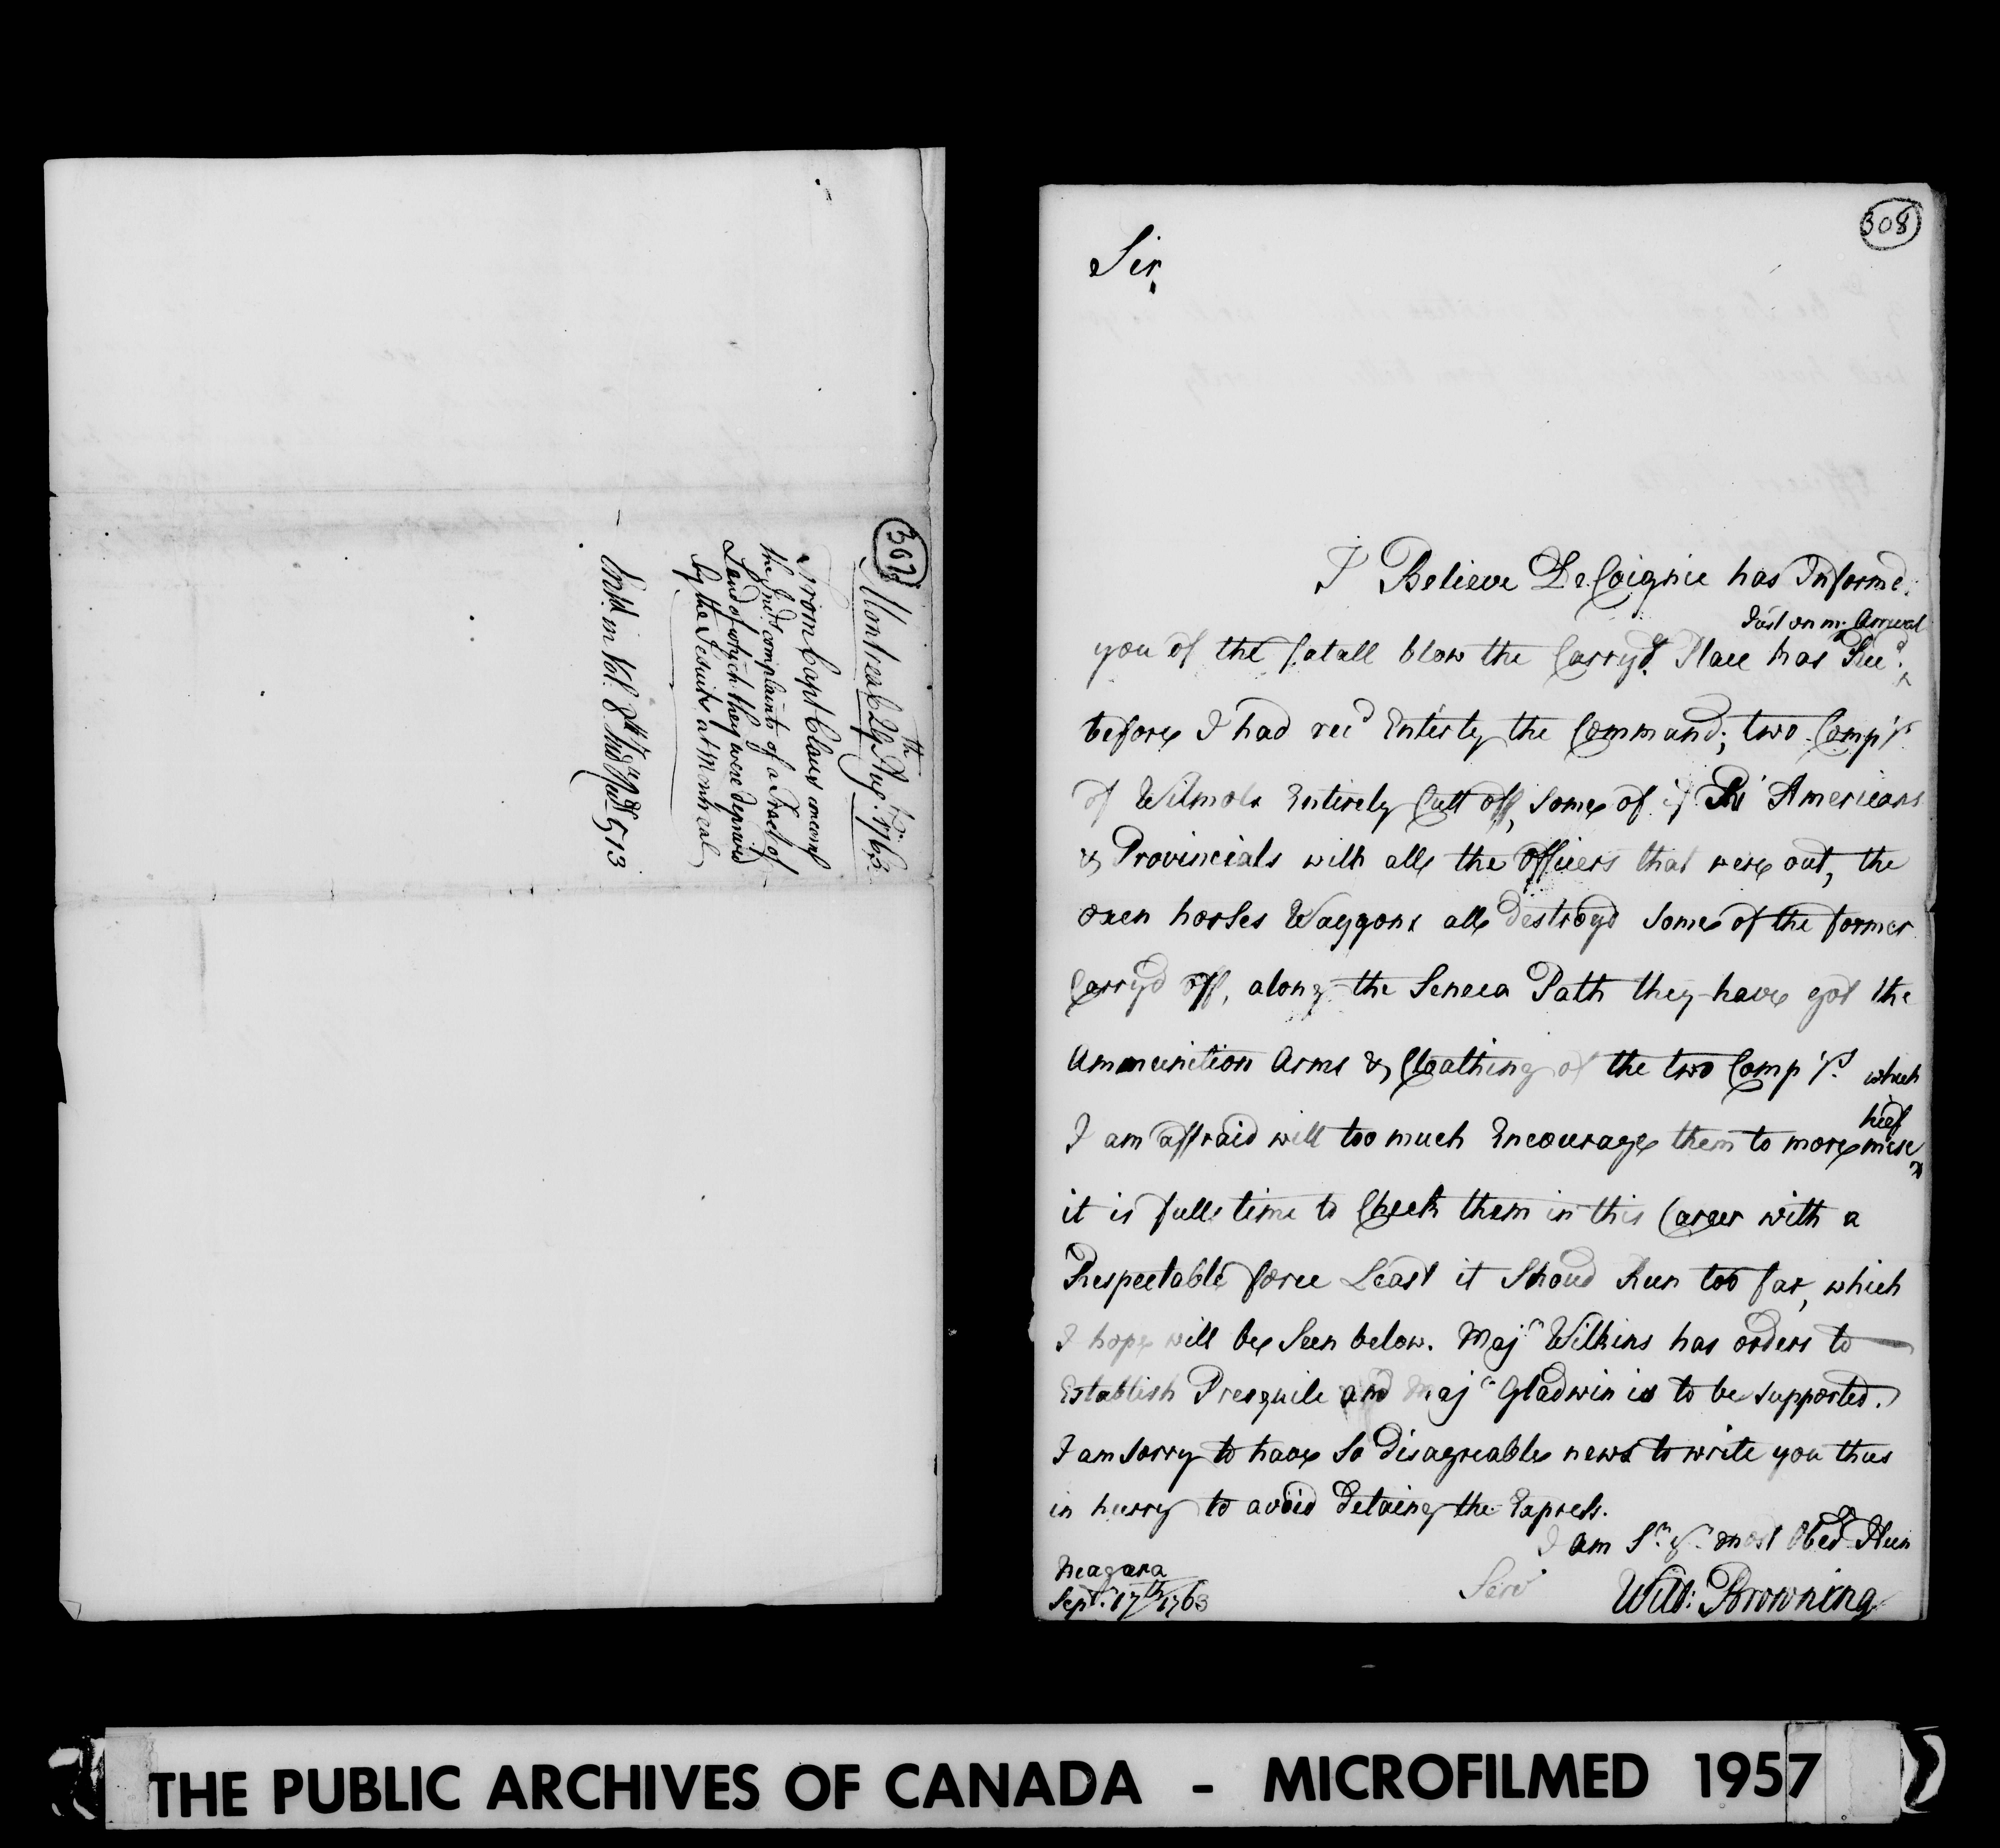 307
Montreal 29th Augt. 1763
From Capt Claus concern'g
the Inds. complaints of a Tract of
Land of which they were deprived
by the Jesuits at Montreal
Entd. in Vol. 8th
513
308
Sir,
I Believe DeCoignie has Informd.
Just on my Arrival
you of the fatall blow the Carryg. Place has Recd. ^
before I had recd Entirly the Command; two Comp'ys
of Wilmots Entirely Cutt off, Some of ye Rl Americans
& Provincials with all the Officers that were out, the
oxen horses Waggons all destroyd Some of the former
Carryd off, along the Seneca Path they have got the
Ammunition Arms & Cloathing of the two Comp'ys. which
I am affraid will too much Encourage them to more mischief
it is full time to Check them in this Career with a
Respectable force Least it Shoud Run too far, which
I hope will be Seen below. Majr Wilkins has orders to
Establish Presquile and Majr Gladwin is to be supported.
I am Sorry to have So disagreable news to write you thus
in hurry to avoid detaing the Express.
I am Sr. yr. most Obedt Hum
Serv
Willm: Browning
Neagara
Sept. 17th 1763
THE PUBLIC ARCHIVES OF CANADA - MICROFILMED 1957